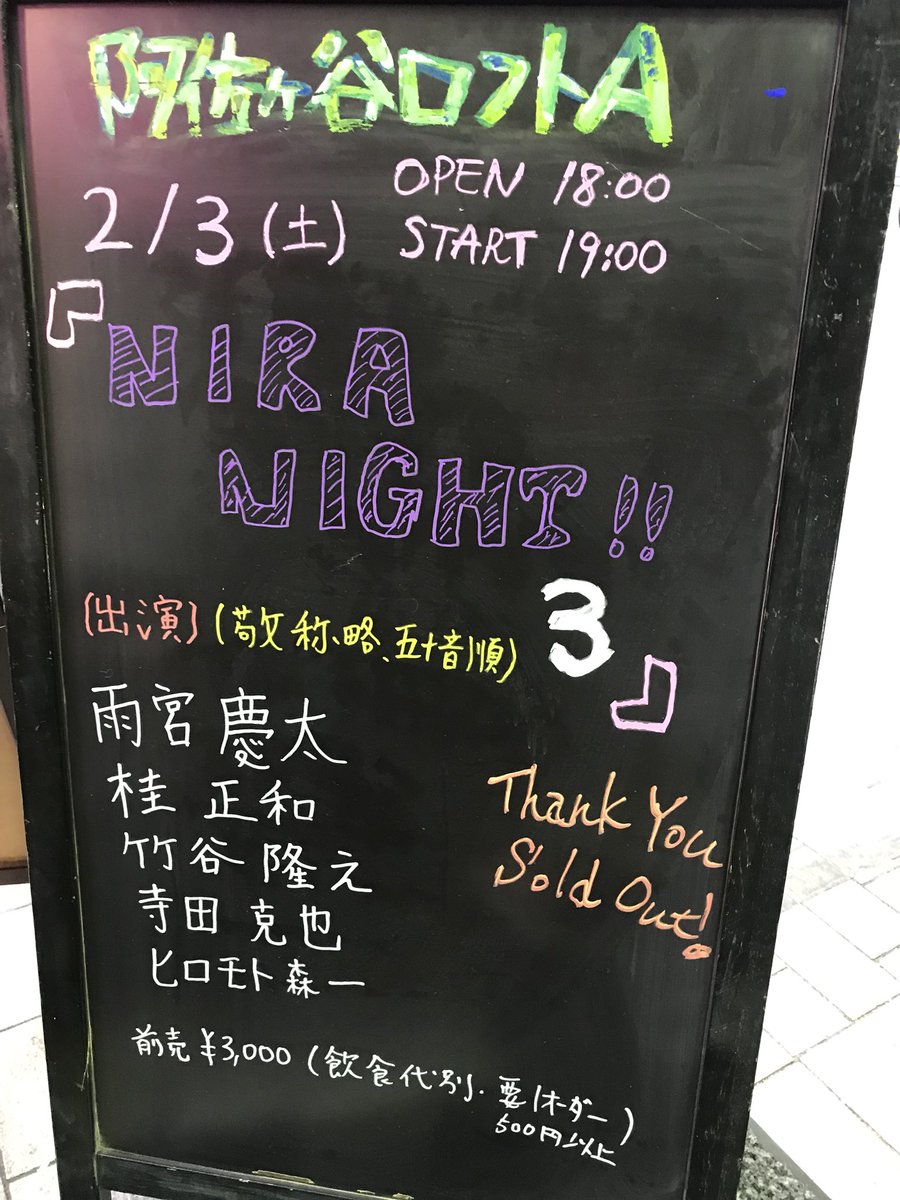 阿佐ヶ谷ロフトA
2/3(土) OPEN 18:00
START 19:00
『NIRA
NIGHT!!
3』
(出演)(敬称略、五十音順)
雨宮 慶太
桂 正和
竹谷 隆之
寺田 克也
ヒロモト 森一
Thank You
Sold Out!
前売 ¥3,000 (飲食代別・要1オーダー)
500円以上